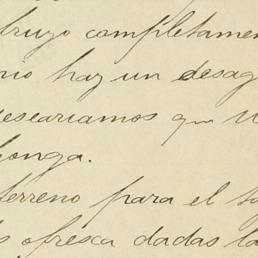 brujo completamen
nio hay un desag
esearíamos que U
longa.
terreno para el ta
s ofresca dadas la